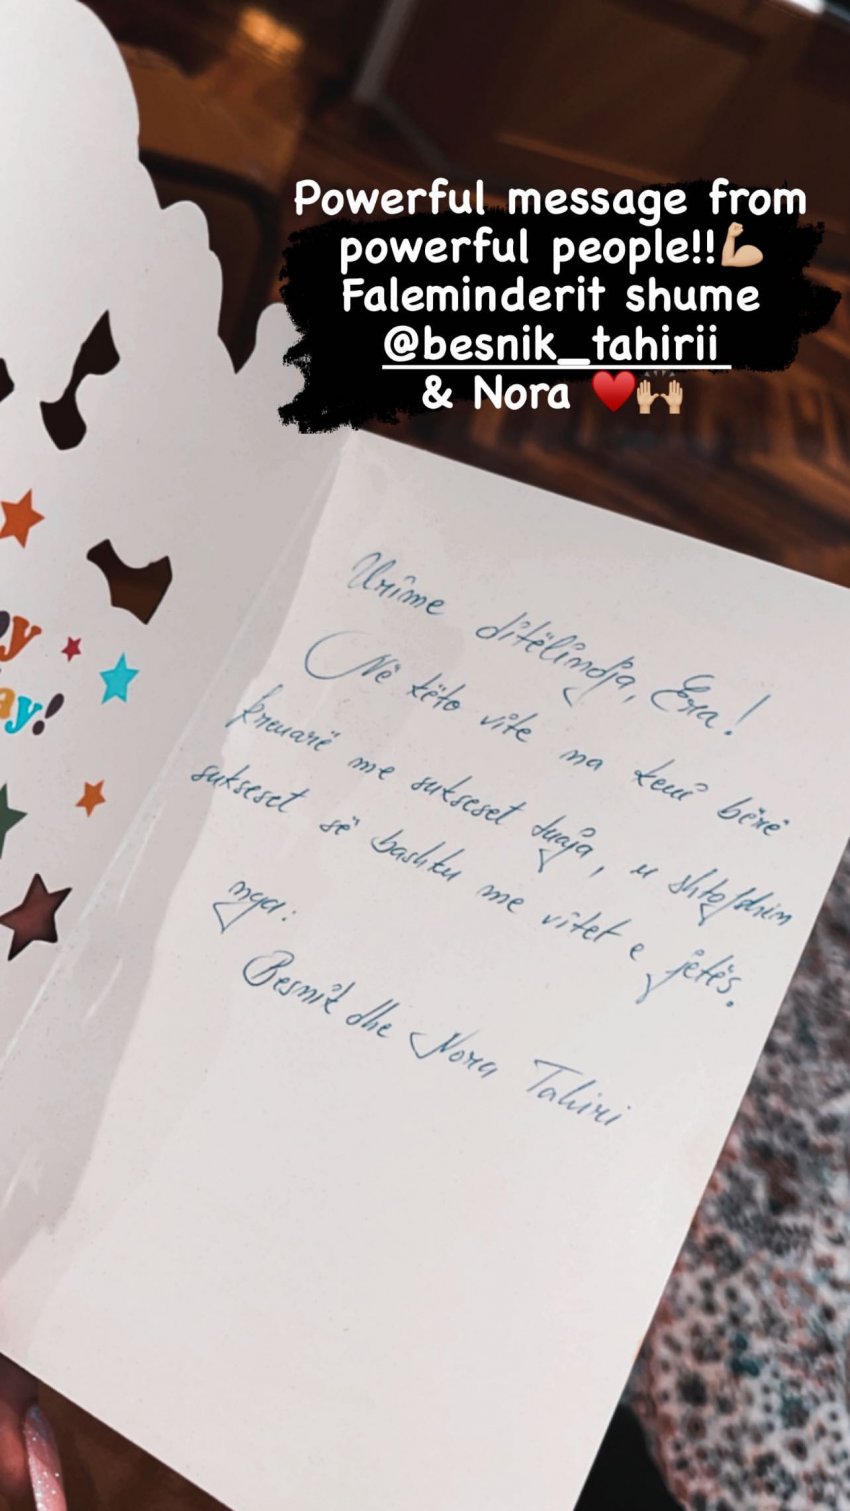 Powerful message from
powerful people!!💪🏼
Faleminderit shume
@besnik_tahirii
& Nora ♥️🙌🏼
y
ay!
Urime ditëlindja, Era!
Në këto vite na keni bërë
krenarë me sukseset tuaja, u shtofshin
sukseset së bashku me vitet e jetës.
nga:
Besnik dhe Nora Tahiri